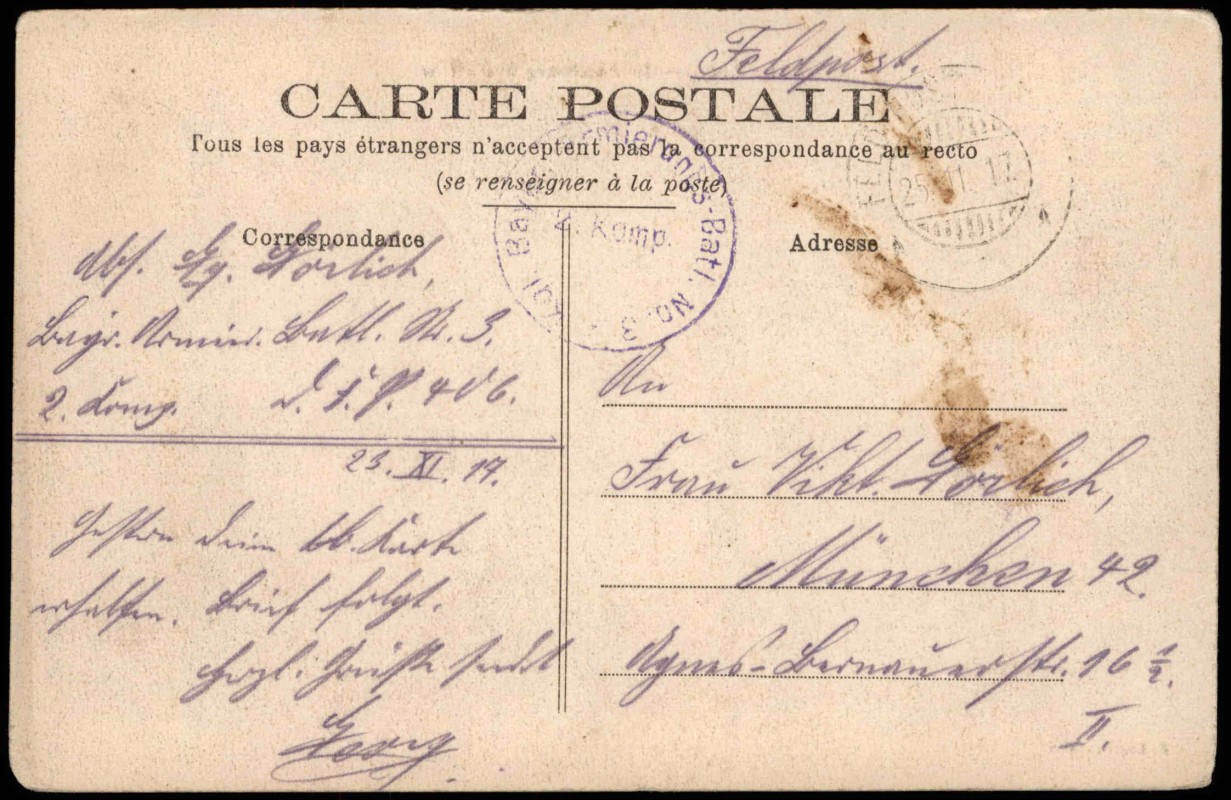 Feldpost.
CARTE POSTALE
Tous les pays étrangers n'acceptent pas la correspondance au recto
(se renseigner à la poste)
Correspondance
Adresse
Kgl. Bayer. Armierungs-Batl. No. 3
2. Komp.
25.11.17
Abs. Gg. Görlich,
Bayr. Armier. Batl. Nr. 3.
2. Komp. D. F. P. 406.
23. XI. 17.
Gestern Deine lb. Karte
erhalten. Brief folgt.
Herzl. Grüße sendet
Georg
An
Frau Vikt. Görlich,
München 42.
Agnes-Bernauerstr. 16 ½.
II.